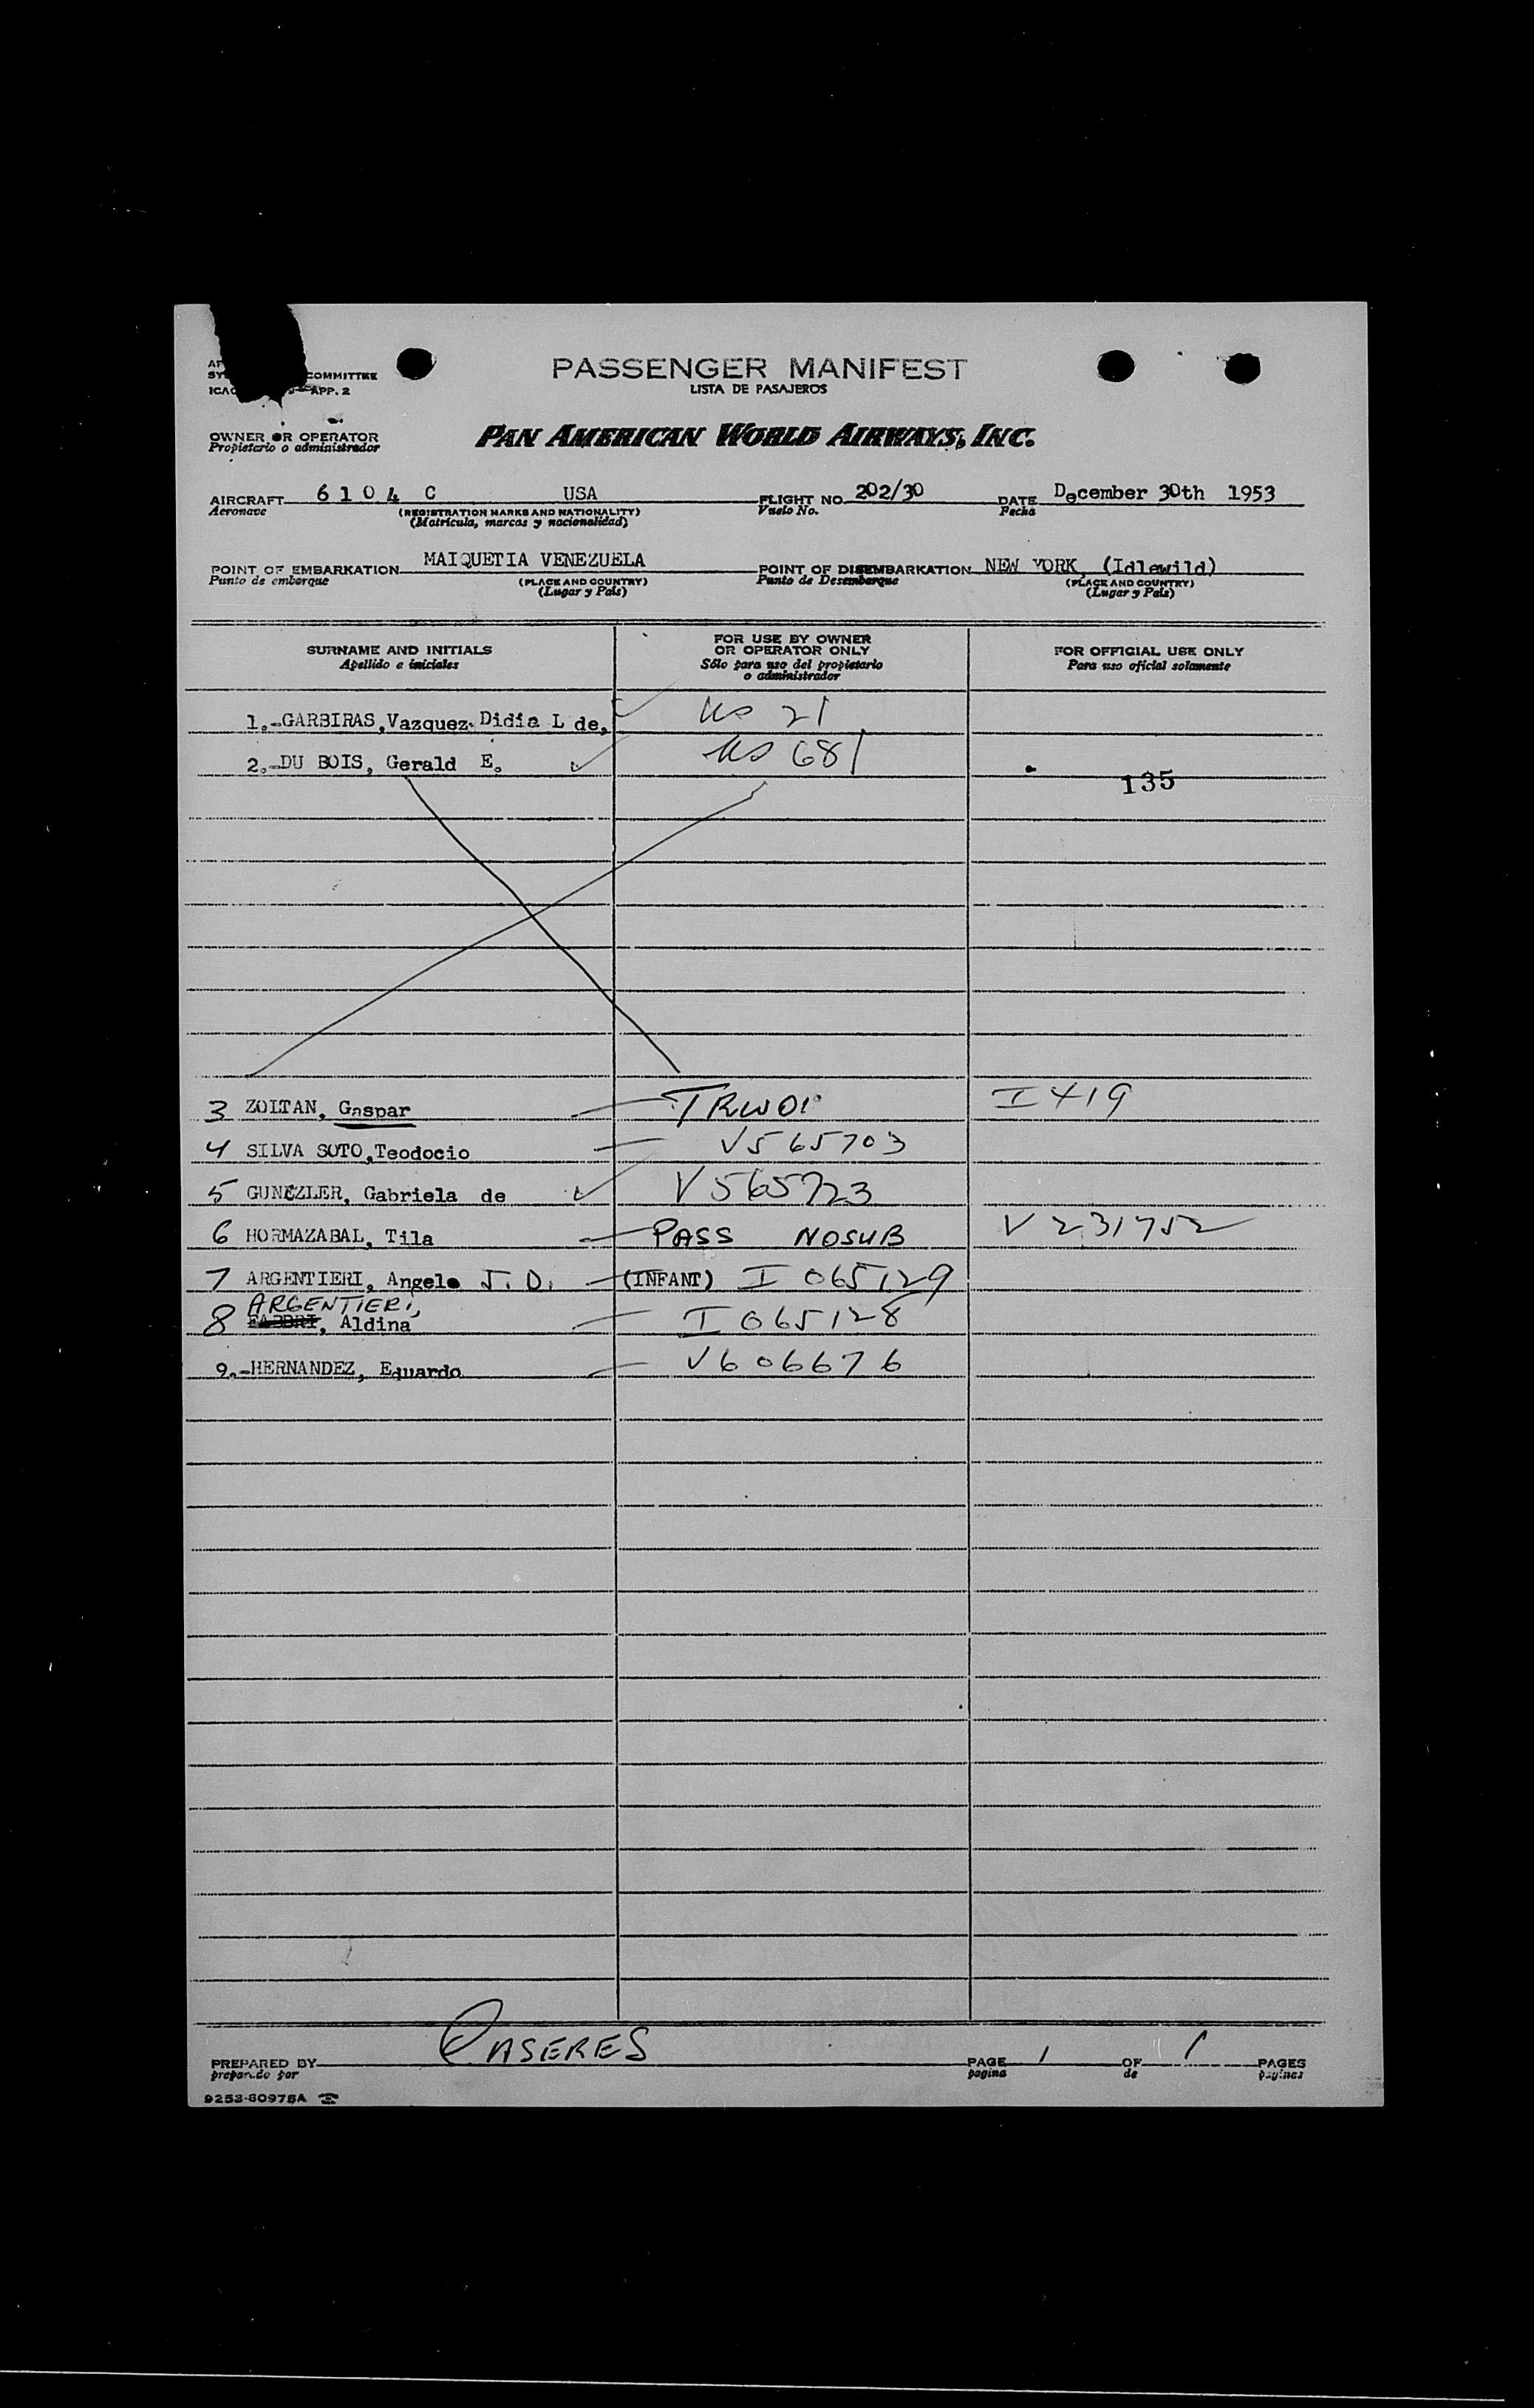 PASSENGER MANIFEST
LISTA DE PASAJEROS
COMMITTEE
APP. 2
OWNER OR OPERATOR
Propietario o administrador
PAN AMERICAN WORLD AIRWAYS, INC.
AIRCRAFT 6 1 0 4 C USA FLIGHT NO. 202/30 DATE December 30th 1953
Aeronave (REGISTRATION MARKS AND NATIONALITY) Vuelo No. Fecha
(Matrícula, marcas y nacionalidad)
POINT OF EMBARKATION MAIQUETIA VENEZUELA POINT OF DISEMBARKATION NEW YORK, (Idlewild)
Punto de embarque (PLACE AND COUNTRY) Punto de Desembarque (PLACE AND COUNTRY)
(Lugar y País) (Lugar y País)
SURNAME AND INITIALS
Apellido e iniciales
FOR USE BY OWNER
OR OPERATOR ONLY
Sólo para uso del propietario
o administrador
FOR OFFICIAL USE ONLY
Para uso oficial solamente
1.-GARBIRAS,Vazquez Didia L de, US 21
2.-DU BOIS, Gerald E. US 681
135
3 ZOLTAN, Gaspar I 419
4 SILVA SOTO,Teodocio V565703
5 GUNEZLER, Gabriela de V565723
6 HORMAZABAL, Tila PASS NOSUB V231752
7 ARGENTIERI, Angelo J. D. (INFANT) I 065129
ARGENTIERI,
8 FABBRI, Aldina I 065128
9.-HERNANDEZ, Eduardo V606676
PREPARED BY CASERES PAGE 1 OF 1 PAGES
preparado por pagina de páginas
9253-60975A